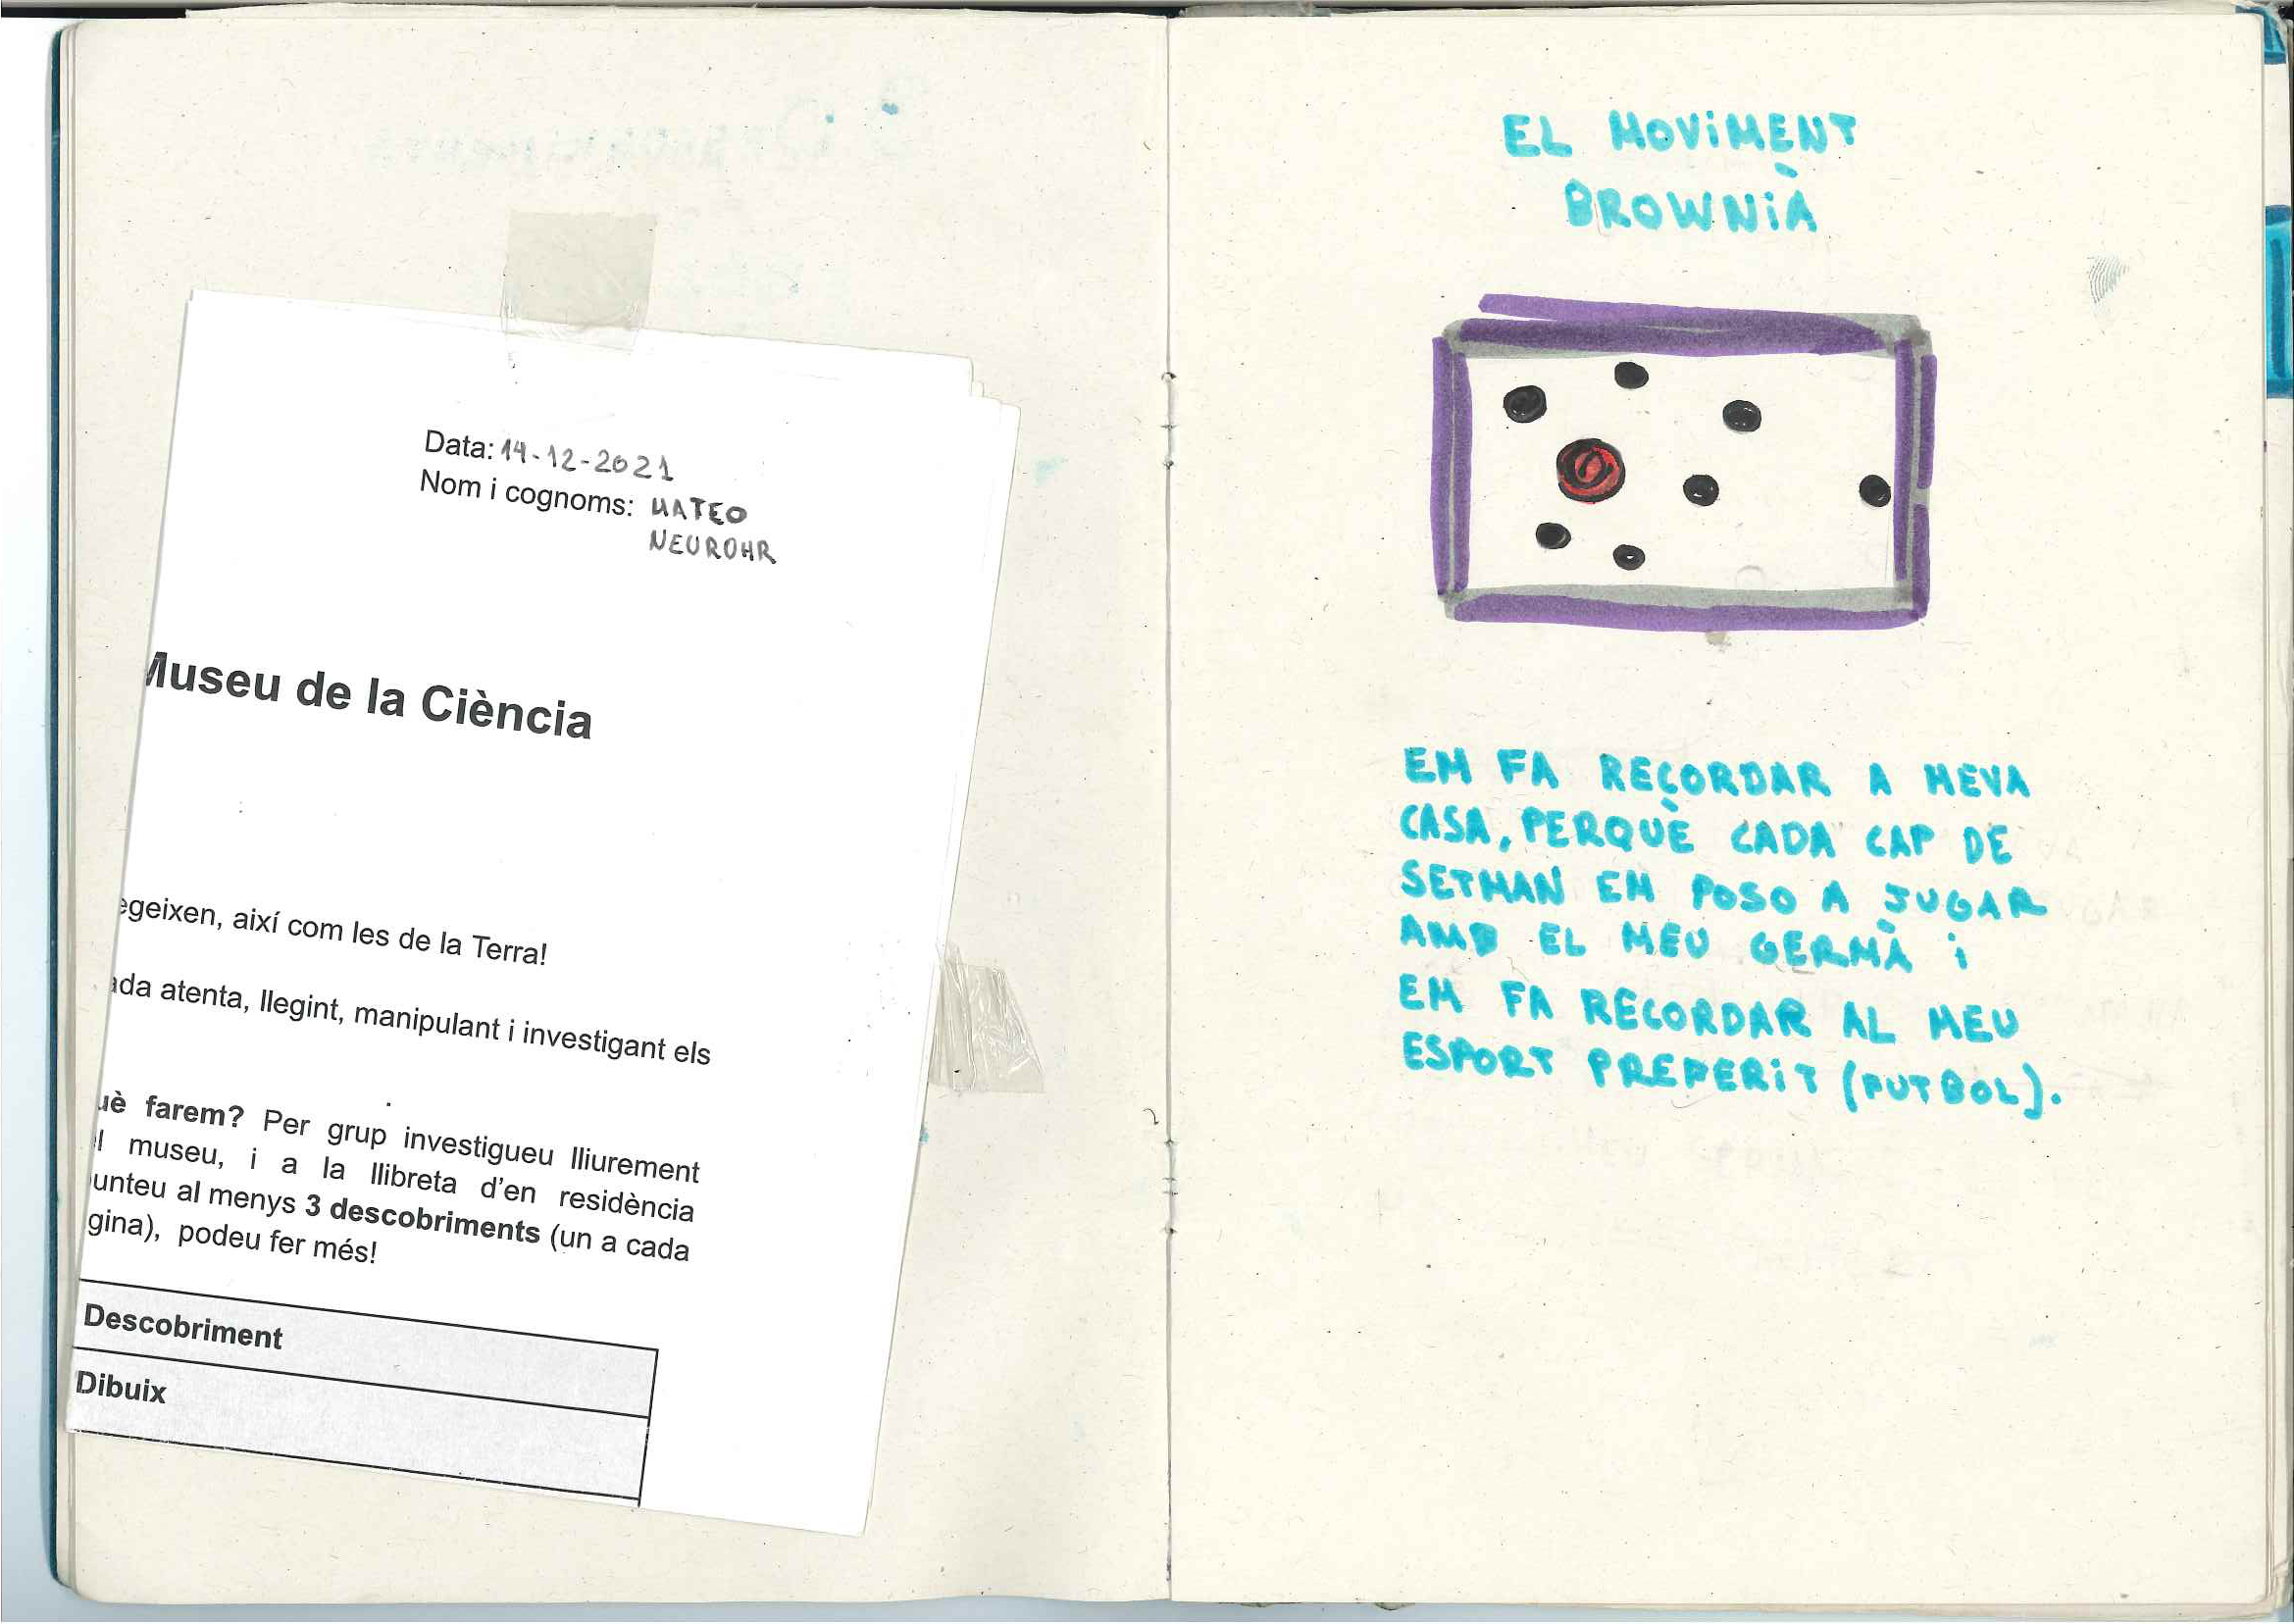 Data: 14-12-2021
Nom i cognoms: MATEO
NEUROHR
Museu de la Ciència
egeixen, així com les de la Terra!
ada atenta, llegint, manipulant i investigant els
uè farem? Per grup investigueu lliurement
el museu, i a la llibreta d'en residència
unteu al menys 3 descobriments (un a cada
gina), podeu fer més!
Descobriment
Dibuix
EL MOViMENT
BROWNiÀ
EM FA REÇORDAR A MEVA
CASA, PERQUÈ CADA CAP DE
SETMAN EM POSO A JUGAR
AMB EL MEU GERMÀ i
EM FA RECORDAR AL MEU
ESPORT PREFERiT (FUTBOL).